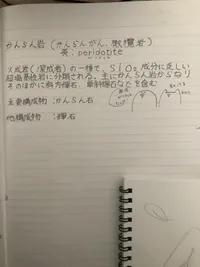 かんらん岩 (かんらんがん、橄欖岩)
英: peridotite
火成岩 (深成岩) の一種で、SiO₂ 成分に乏しい
超塩基性岩に分類される。主にかんらん石からなり
そのほかに斜方輝石、単斜輝石などを含む
主要構成物 : かんらん石
他構成物 : 輝石